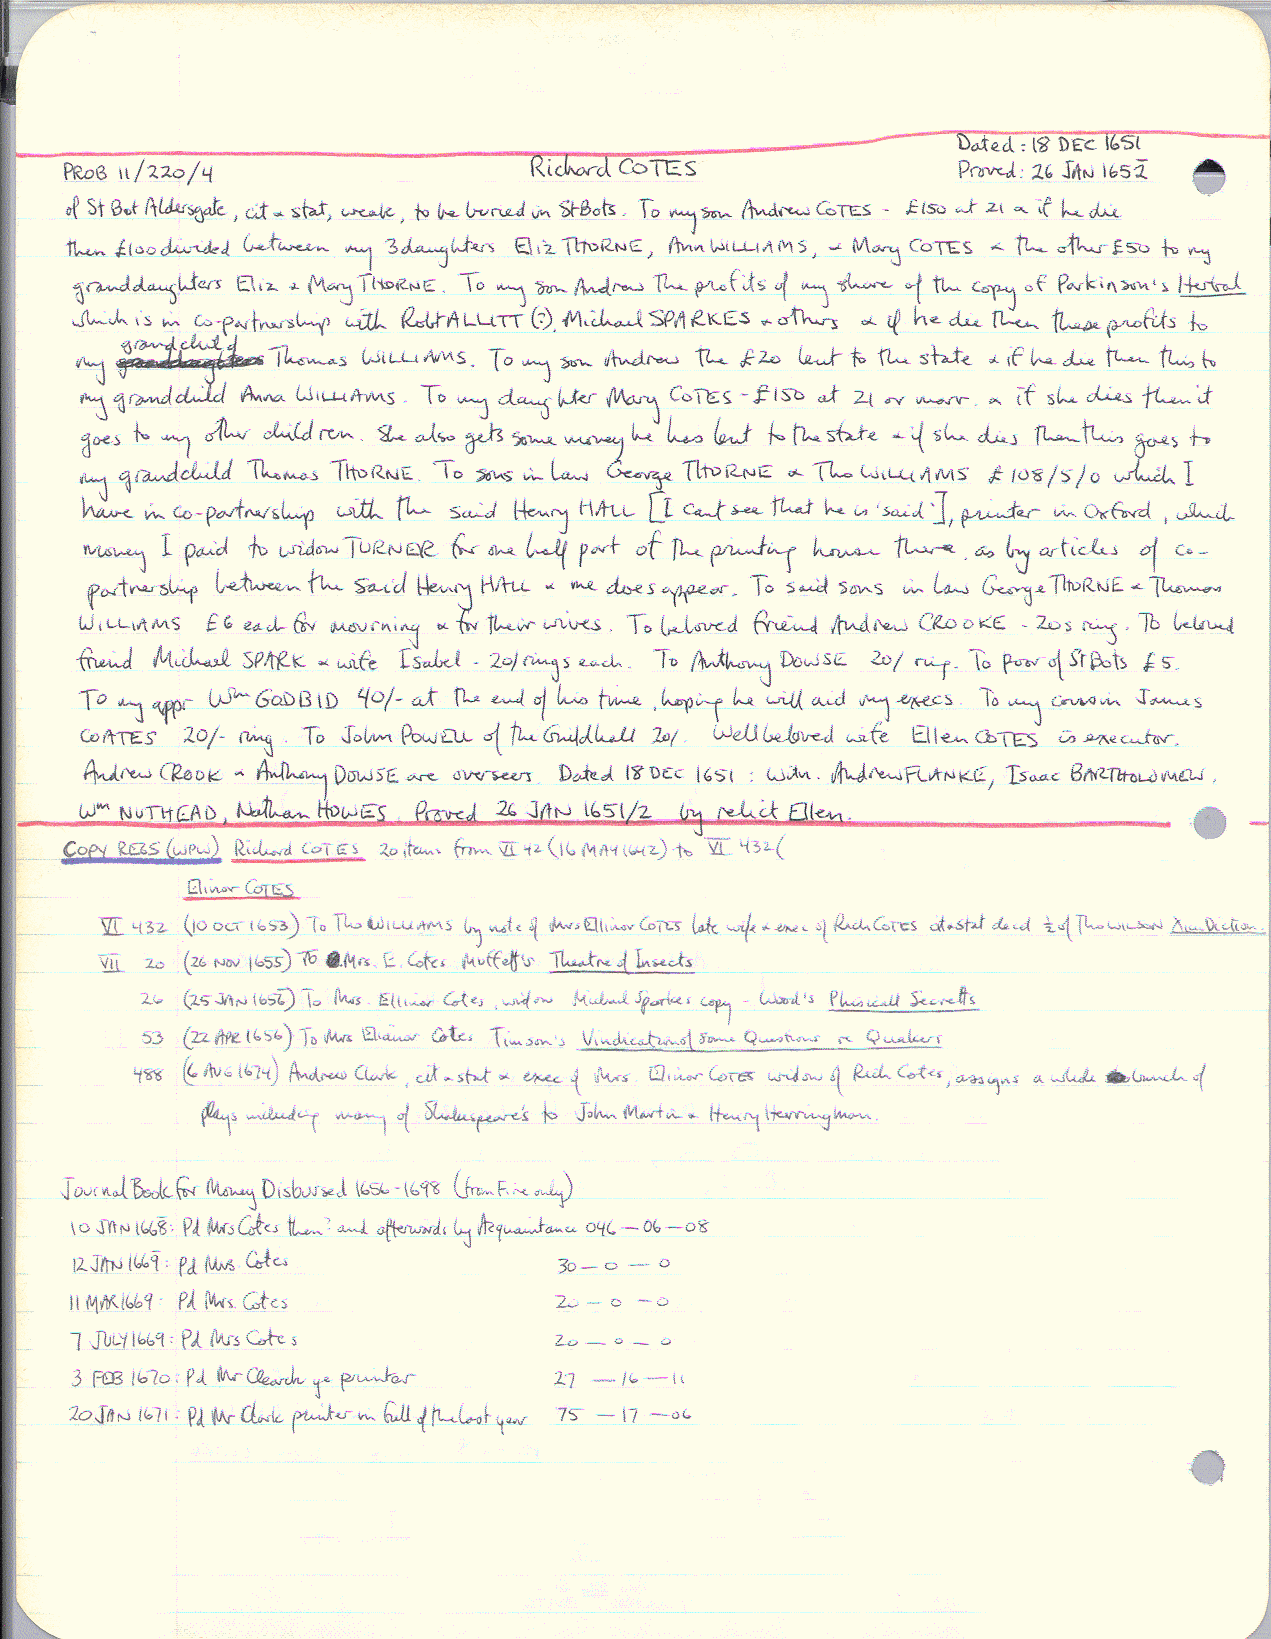 Dated: 18 DEC 1651
PROB 11/220/4 Richard COTES Proved: 26 JAN 1652
of St Bot Aldersgate, cit & stat, weak, to be buried in St Bots. To my son Andrew COTES - £150 at 21 & if he die
then £100 divided between my 3 daughters Eliz THORNE, Ann WILLIAMS, & Mary COTES & the other £50 to my
granddaughters Eliz & Mary THORNE. To my son Andrew the profits of my share of the copy of Parkinson's Herbal
which is in co-partnership with Robt ALLITT (?), Michael SPARKES & others & if he die then these profits to
my grandchild Thomas WILLIAMS. To my son Andrew the £20 lent to the state & if he die then this to
my grandchild Anna WILLIAMS. To my daughter Mary COTES - £150 at 21 or marr. & if she dies then it
goes to my other children. She also gets some money he has lent to the state & if she dies then this goes to
my grandchild Thomas THORNE. To sons in law George THORNE & Tho WILLIAMS £108/5/0 which I
have in co-partnership with the said Henry HALL [I cant see that he is 'said'], printer in Oxford, which
money I paid to widow TURNER for one half part of the printing house there, as by articles of co-
partnership between the said Henry HALL & me does appear. To said sons in law George THORNE & Thomas
WILLIAMS £6 each for mourning & for their wives. To beloved friend Andrew CROOKE - 20s ring. To beloved
friend Michael SPARK & wife Isabel - 20/ rings each. To Anthony DOWSE 20/ ring. To poor of St Bots £5.
To my appr Wm GODBID 40/- at the end of his time, hoping he will aid my execs. To my cousin James
COATES 20/- ring. To John POWELL of the Guildhall 20/. Wellbeloved wife Ellen COTES is executor.
Andrew CROOK & Anthony DOWSE are overseers. Dated 18 DEC 1651: Witn. Andrew FLANKE, Isaac BARTHOLOMEW,
Wm NUTHEAD, Nathan HOWES. Proved 26 JAN 1651/2 by relict Ellen.
COPY REGS (WPW) Richard COTES 20 items from VI 42 (16 MAY 1642) to VI 432(
Elinor COTES
VI 432 (10 OCT 1653) To Tho WILLIAMS by note of Mrs Ellinor COTES late wife & exec of Rich COTES cit & stat decd ½ of Tho WILSON Xtian Diction.
VII 20 (26 NOV 1655) To Mrs. E. Cotes Muffett's Theatre of Insects
26 (25 JAN 1656) To Mrs. Ellinor Cotes, widow Michael Sparkes copy - Wood's Phisicall Secretts
53 (22 APR 1656) To Mrs Elianor Cotes Timson's Vindication of some Questions re Quakers
488 (6 AUG 1674) Andrew Clark, cit & stat & exec of Mrs. Elinor COTES widow of Rich Cotes, assigns a whole bunch of
plays including many of Shakespeare's to John Martin & Henry Herringman.
Journal Book for Money Disbursed 1656-1698 (from Fire only)
10 JAN 1668: Pd Mrs Cotes then? and afterwards by Acquaintance 046 - 06 - 08
12 JAN 1669: Pd Mrs. Cotes 30 - 0 - 0
11 MAR 1669: Pd Mrs. Cotes 20 - 0 - 0
7 JULY 1669: Pd Mrs Cotes 20 - 0 - 0
3 FEB 1670: Pd Mr Clearck ye printer 27 - 16 - 11
20 JAN 1671: Pd Mr Clark printer in full of the last year 75 - 17 - 06